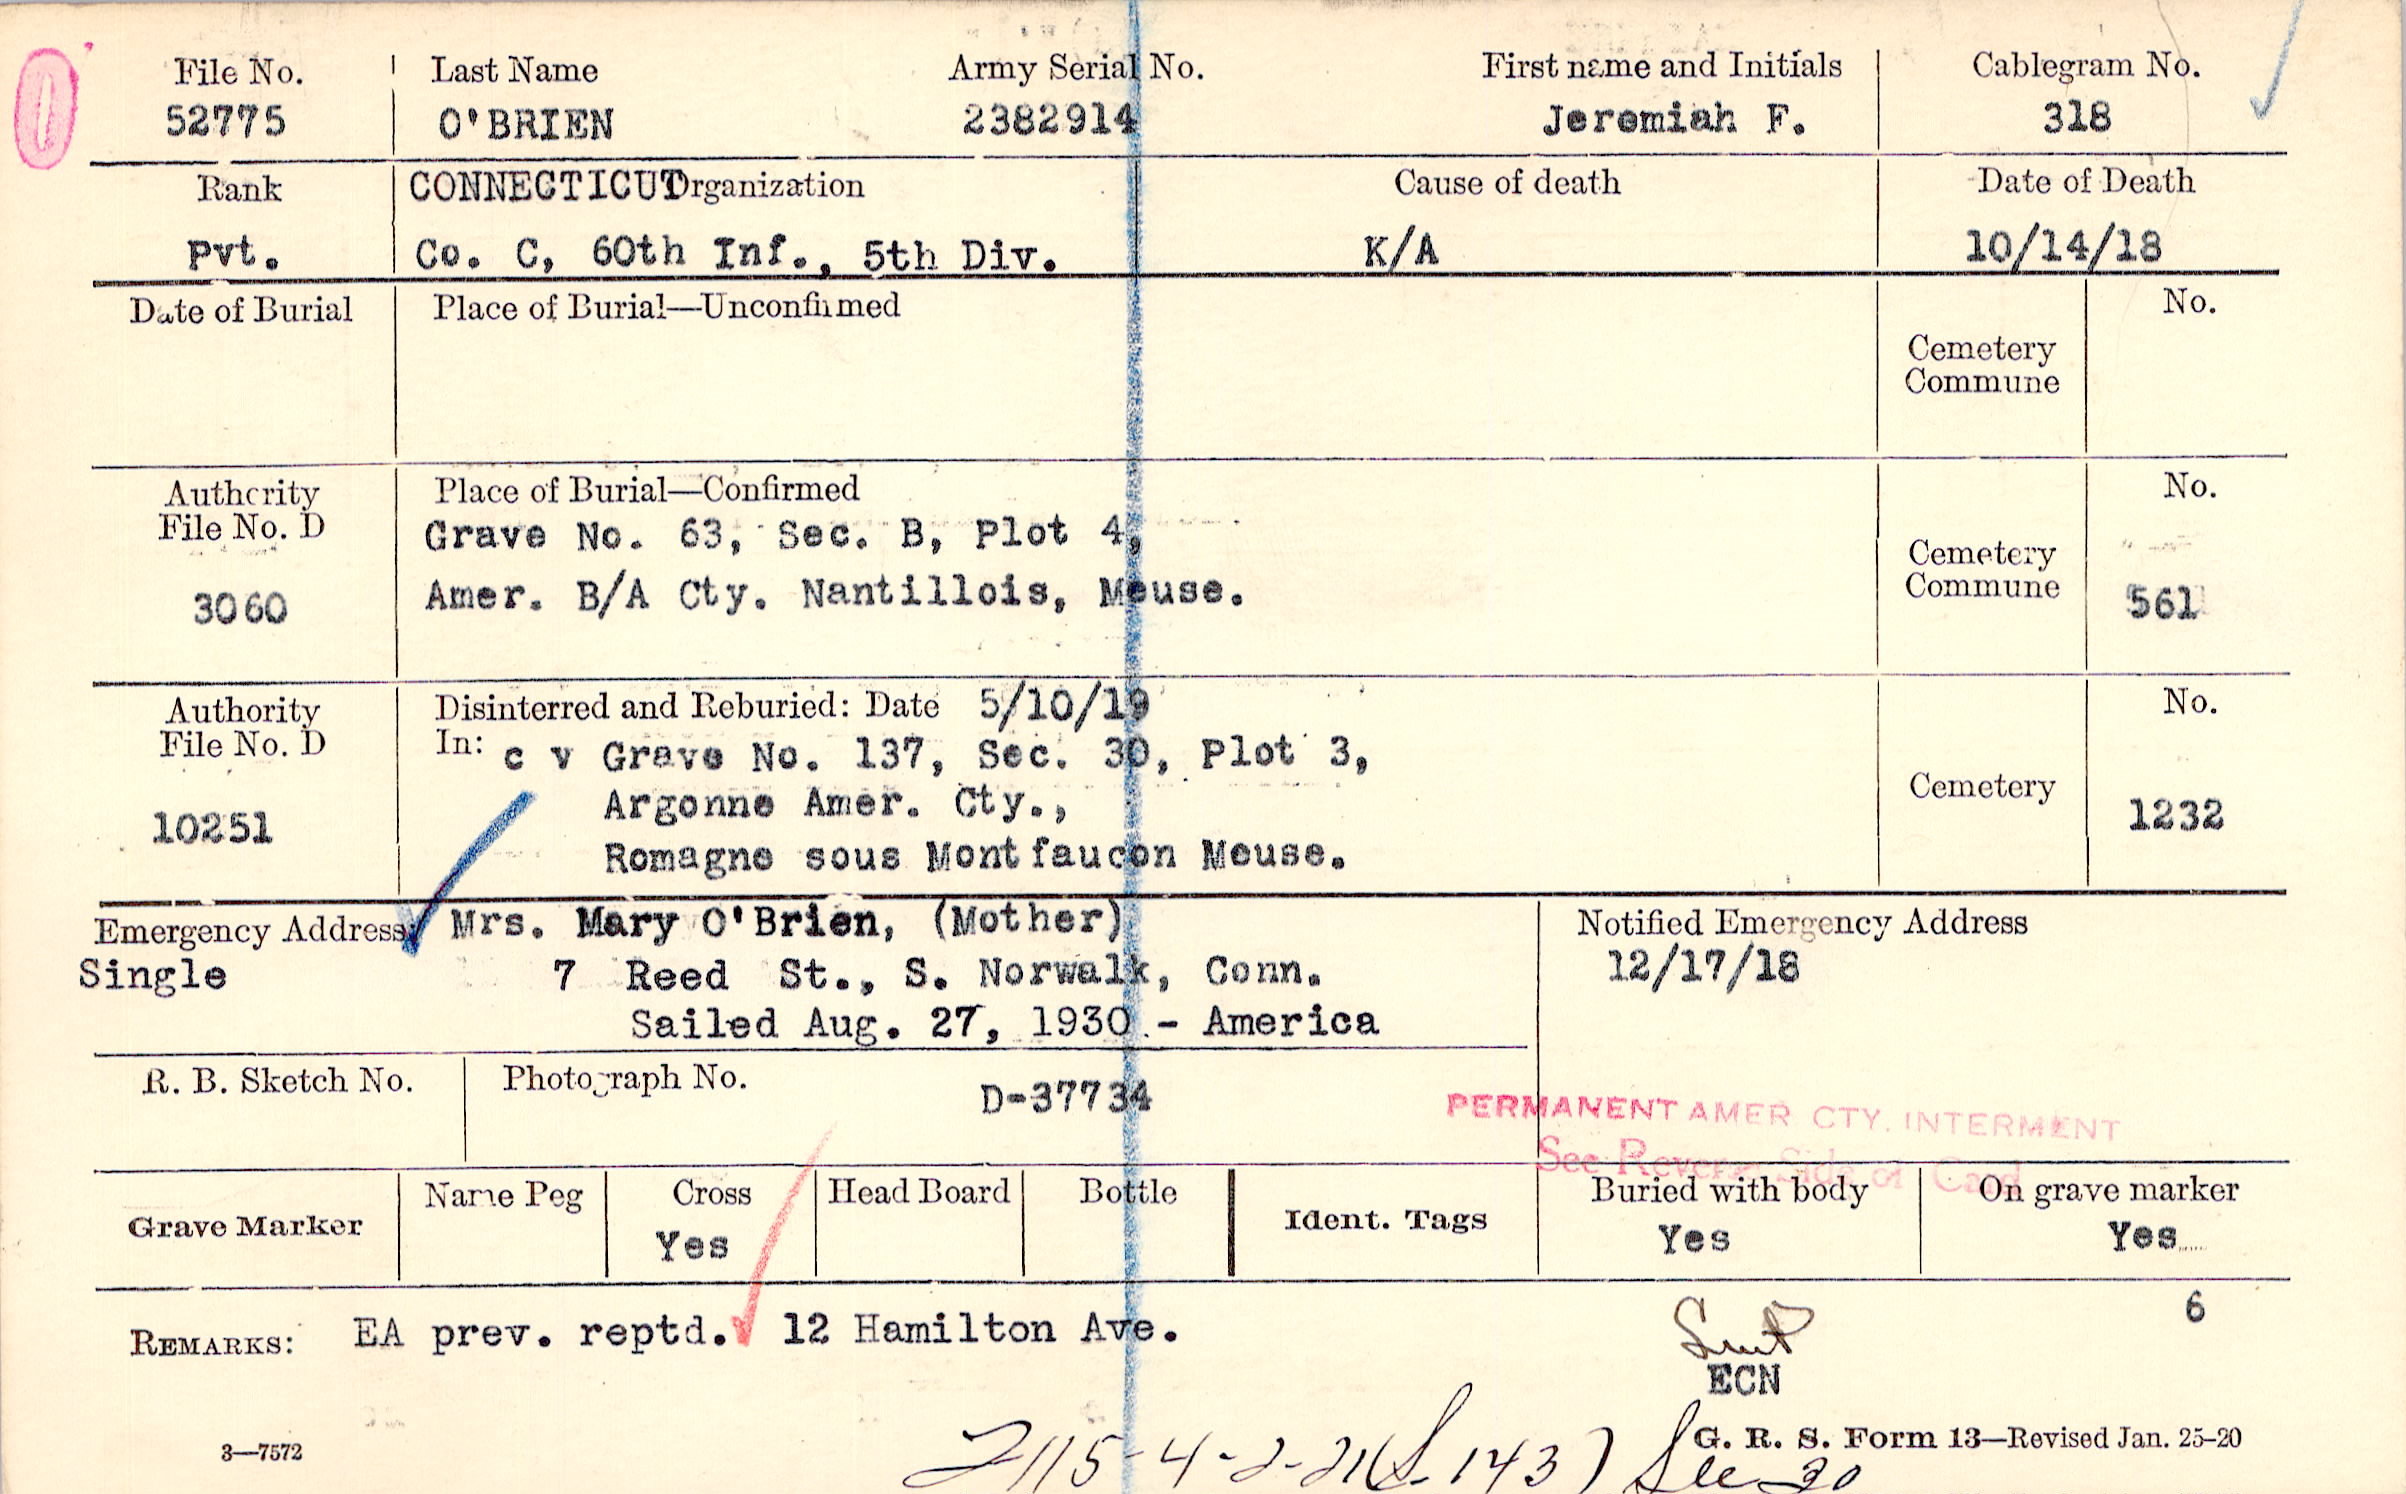 File No. Last Name Army Serial No. First name and Initials Cablegram No.
52775 O'BRIEN 2382914 Jeremiah F. 318
Rank CONNECTICUT Organization Cause of death Date of Death
Pvt. Co. C, 60th Inf., 5th Div. K/A 10/14/18
Date of Burial Place of Burial—Unconfirmed No.
Cemetery
Commune
Authority Place of Burial—Confirmed No.
File No. D Grave No. 63, Sec. B, Plot 4,
Cemetery
3060 Amer. B/A Cty. Nantillois, Meuse. Commune 561
Authority Disinterred and Reburied: Date 5/10/19 No.
File No. D In: c v Grave No. 137, Sec. 30, Plot 3,
Argonne Amer. Cty., Cemetery
10251 1232
Romagne sous Montfaucon Meuse.
Emergency Address: Mrs. Mary O'Brien, (Mother) Notified Emergency Address
Single 7 Reed St., S. Norwalk, Conn. 12/17/18
Sailed Aug. 27, 1930 - America
R. B. Sketch No. Photograph No. D-37734
PERMANENT AMER CTY. INTERMENT
See Reverse Side of Card
Name Peg Cross Head Board Bottle Buried with body On grave marker
Grave Marker Yes Ident. Tags Yes Yes
6
REMARKS: EA prev. reptd. 12 Hamilton Ave.
ECN
3—7572 G. R. S. Form 13—Revised Jan. 25-20
4-2-21 (S. 143)